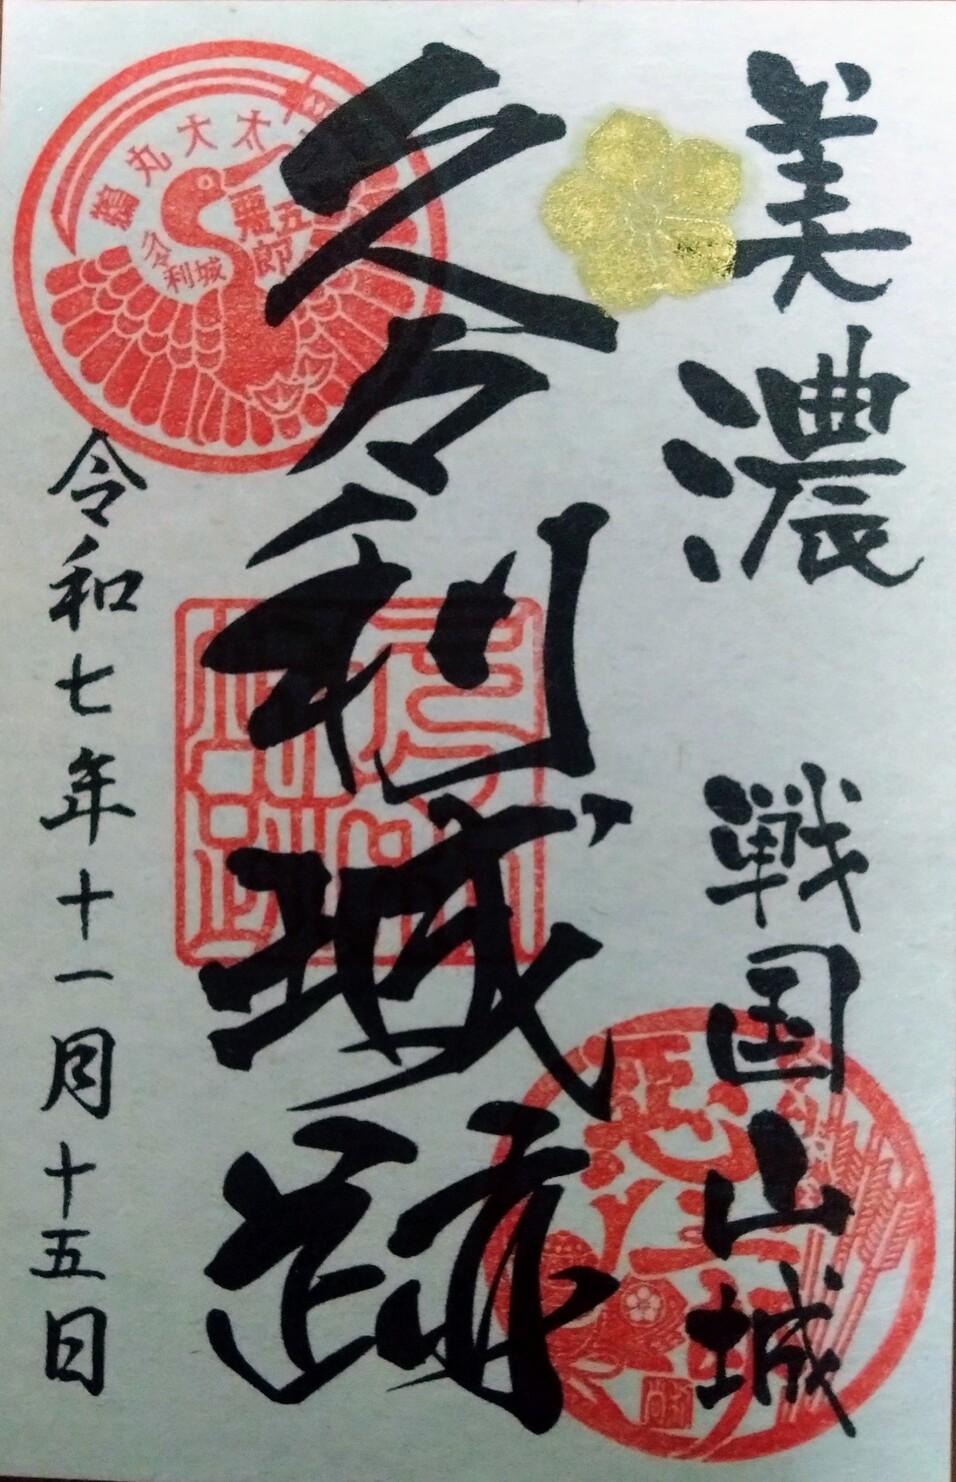 美濃 戦国山城
久々利城跡
令和七年十一月十五日
鶴丸大太
悪五郎
久々利城